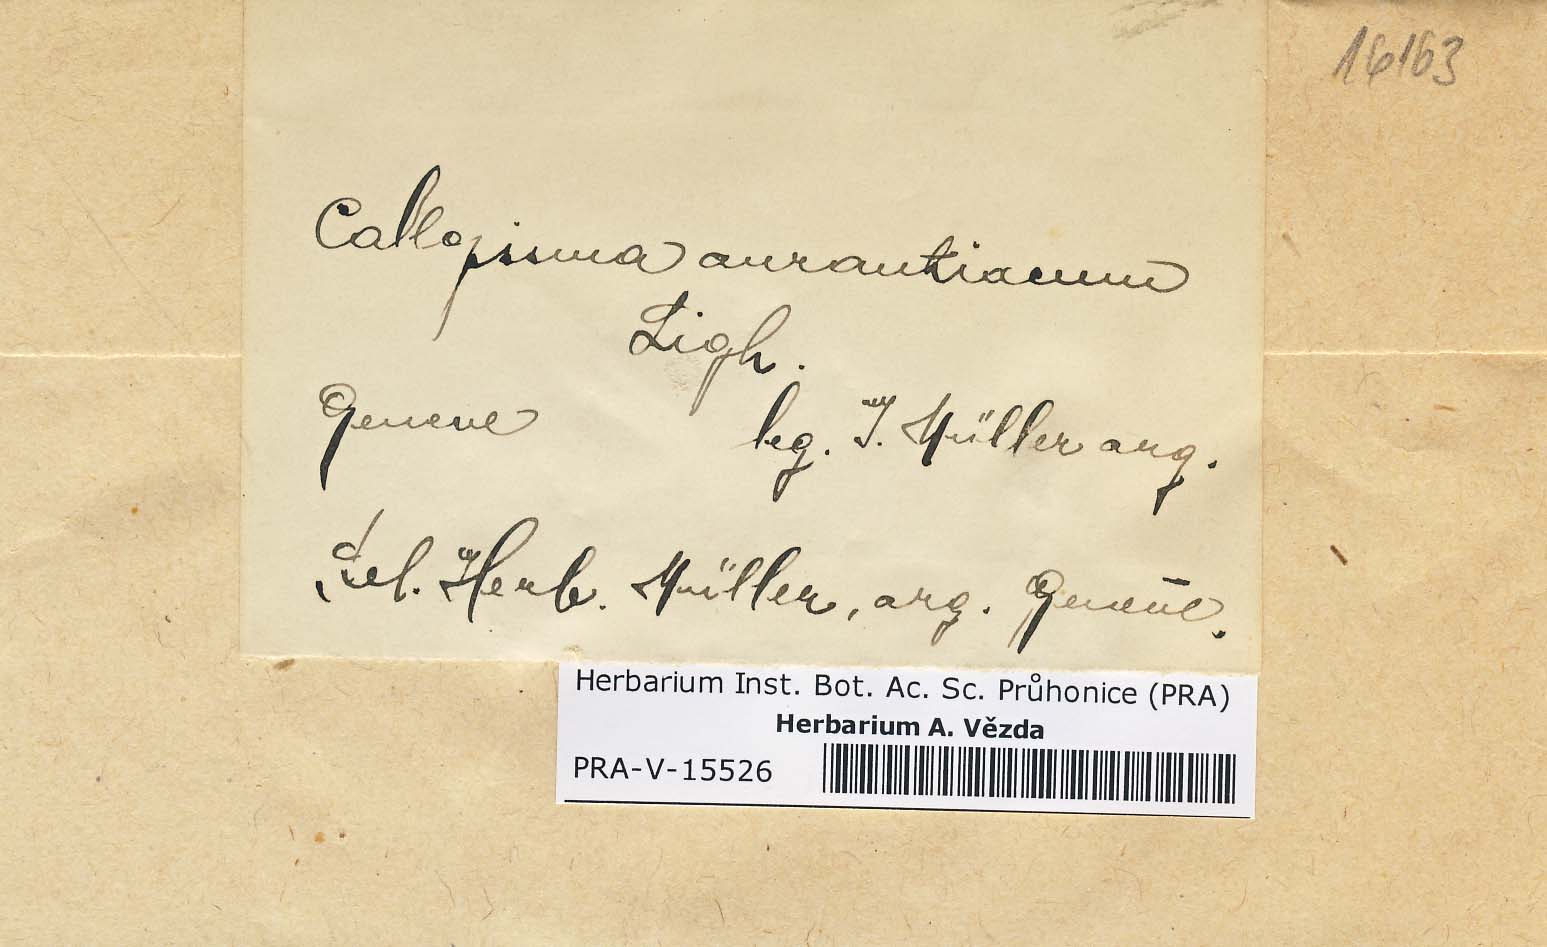 16163
Callopisma aurantiacum
Ligh.
Geneve leg. J. Müller arg.
Sel. Herb. Müller, arg. Geneve.
Herbarium Inst. Bot. Ac. Sc. Průhonice (PRA)
Herbarium A. Vězda
PRA-V-15526